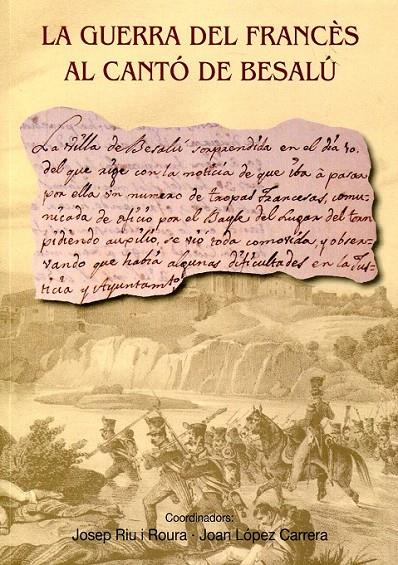 LA GUERRA DEL FRANCÈS
AL CANTÓ DE BESALÚ
La villa de Besalú sorprendida en el dia 10.
del que rige con la noticia de que iba à pasar
por ella un numero de tropas Francesas, comu-
nicada de oficio por el Bayle del Lugar del torn
pidiendo aupilio, se vió toda comovida, y obser-
vando que habia algunas dificultades en la Jus-
ticia y Ayuntamto
Coordinadors:
Josep Riu i Roura · Joan López Carrera